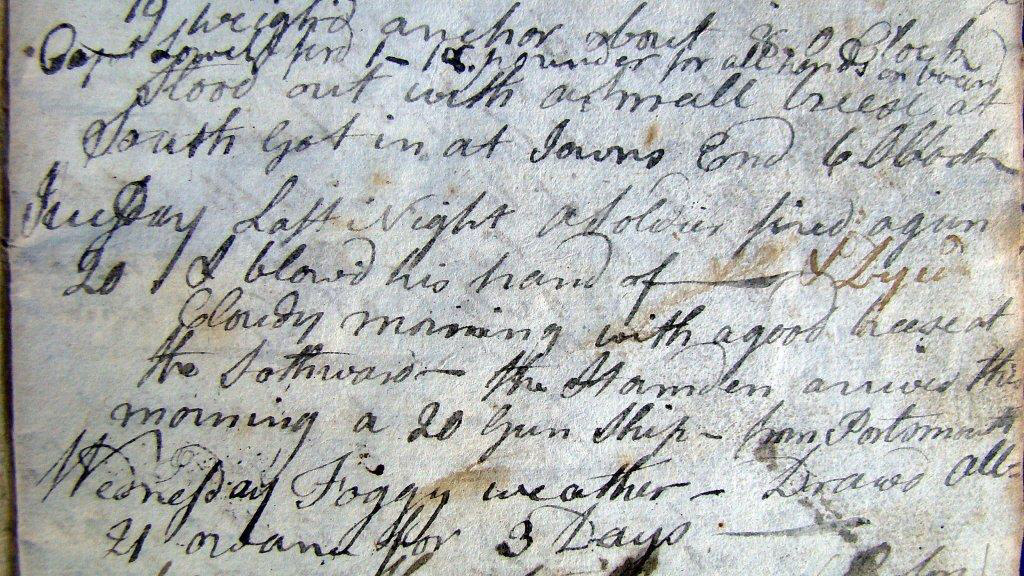 19 weighd anchor about 8 O Clock
Capt Lowell fird 1 - 18 pounder for all hands on board
Stood out with a small breese at
South Got in at Towns End 6 Oclock
Tuesday Last Night a Soldier fired a gun
20 & blow'd his hand of — & Dy'd
Cloudy morning with a good breese at
the Sothward - the Hamden arrived this
morning a 20 Gun Ship - from Portsmouth
Wednesday Foggy weather - Drawd all-
21 owance for 3 Days —